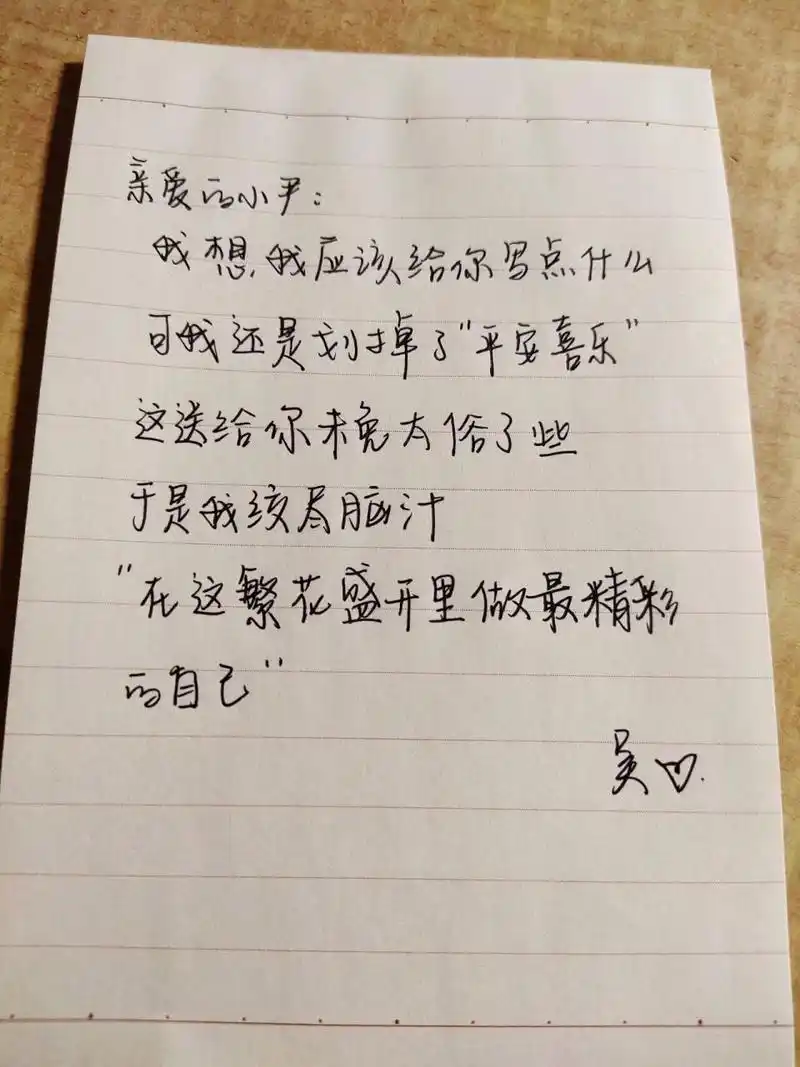 亲爱的小尹：
我想，我应该给你写点什么
可我还是划掉了"平安喜乐"
这送给你未免太俗了些
于是我绞尽脑汁
"在这繁花盛开里做最精彩
的自己"
吴♡.